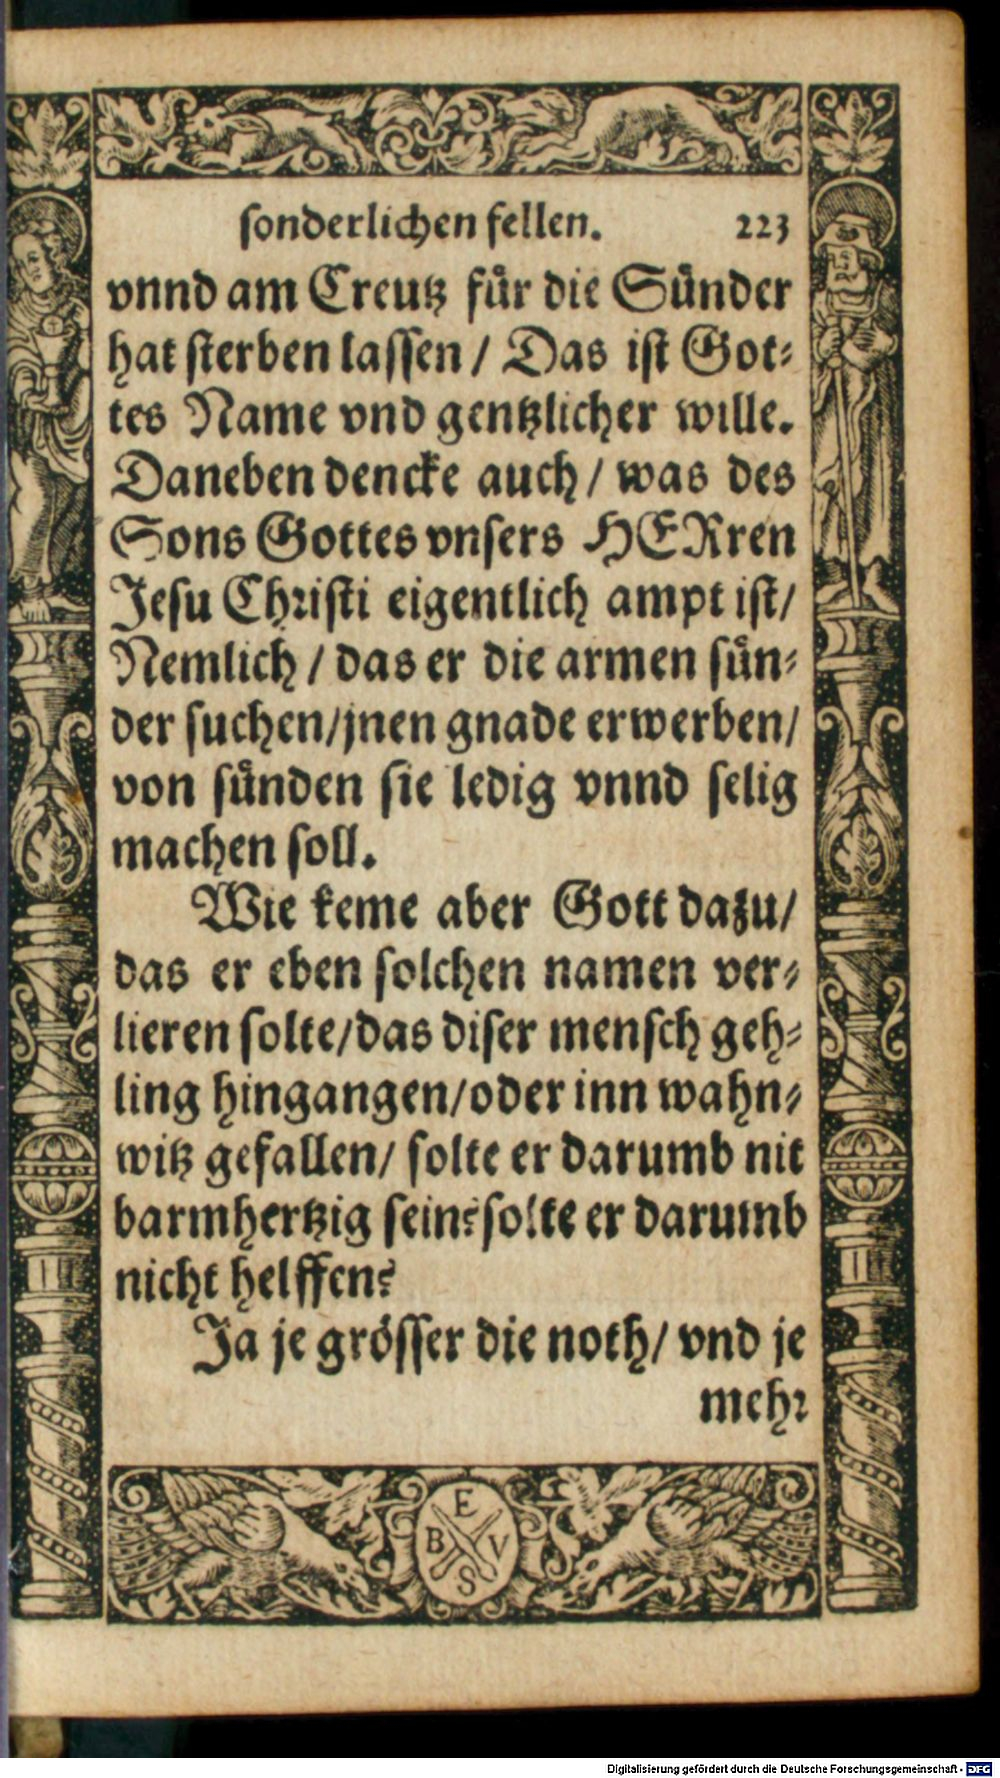 sonderlichen fellen. 223
vnnd am Creutz für die Sünder
hat sterben lassen / Das ist Got-
tes Name vnd gentzlicher wille.
Daneben dencke auch / was des
Sons Gottes vnsers HERren
Jesu Christi eigentlich ampt ist/
Nemlich / das er die armen sün-
der suchen/jnen gnade erwerben/
von sünden sie ledig vnnd selig
machen soll.
Wie keme aber Gott dazu/
das er eben solchen namen ver-
lieren solte/das diser mensch geh-
ling hingangen/oder inn wahn-
witz gefallen/ solte er darumb nit
barmhertzig sein? solte er darumb
nicht helffen?
Ja je grösser die noth/ vnd je
mehr
E
B V
S
Digitalisierung gefördert durch die Deutsche Forschungsgemeinschaft - DFG